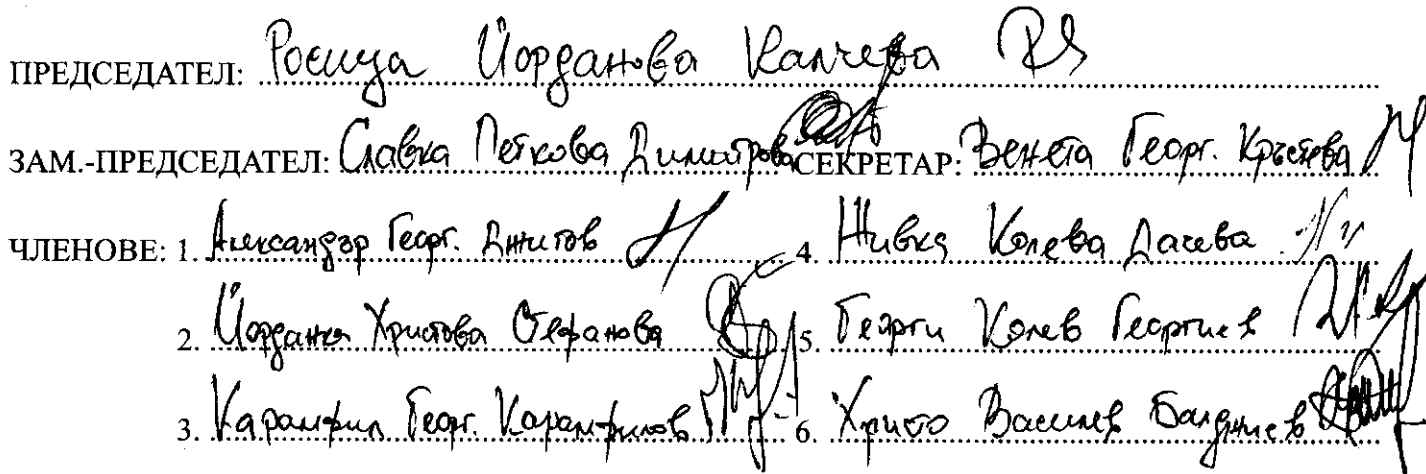 ПРЕДСЕДАТЕЛ: Росица Йорданова Калчева
ЗАМ.-ПРЕДСЕДАТЕЛ: Славка Петкова Димитрова СЕКРЕТАР: Венета Георг. Кръстева
ЧЛЕНОВЕ: 1. Александър Георг. 4. Живка Колева Дачева
2. Йорданка Христова Стефанова 5. Георги Колев Георгиев
3. Карамфил Георг. Карамфилов 6. Христо Василев